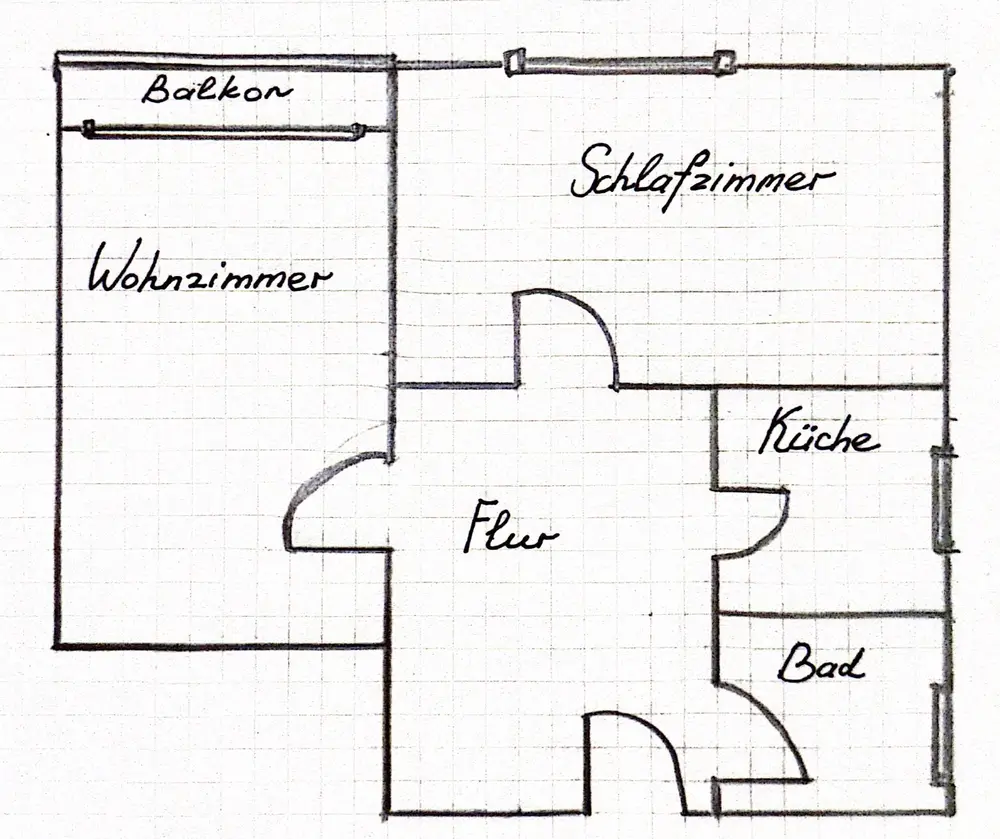 Balkon
Schlafzimmer
Wohnzimmer
Küche
Flur
Bad